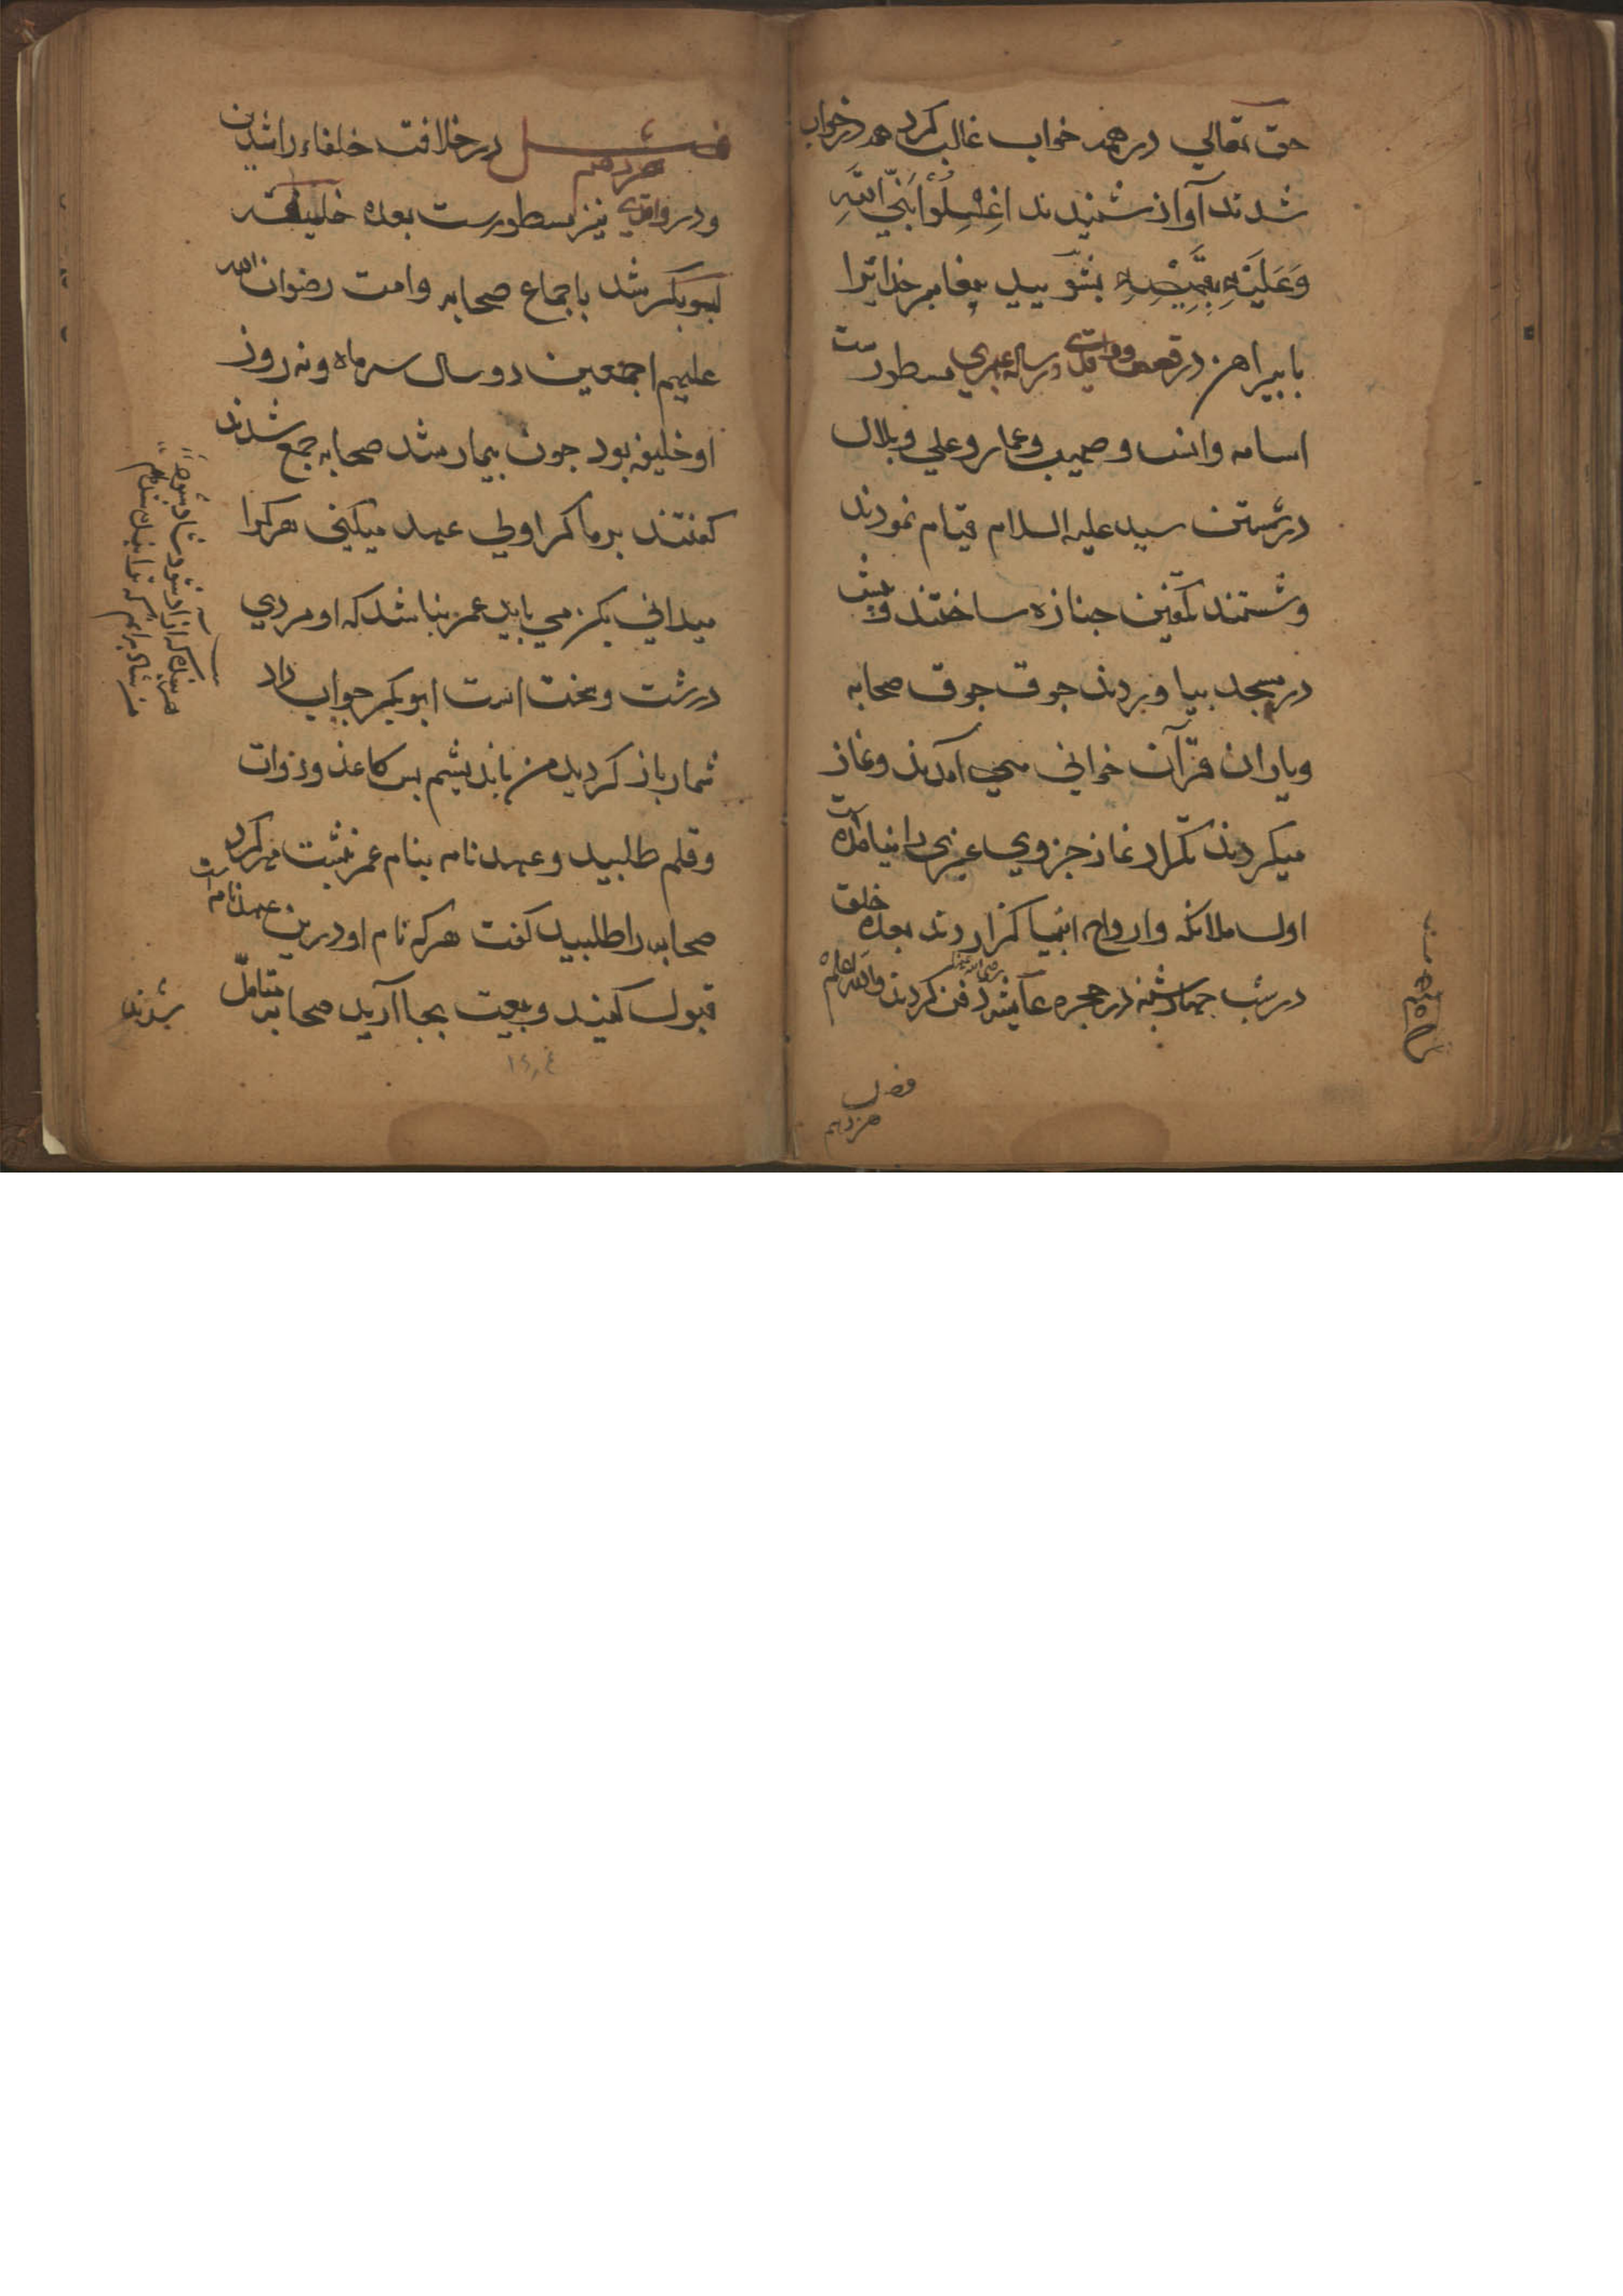 حق تعالی در همه خواب غالب کرد همه در خواب
شدند آواز شنیدند اغسلوا نبی الله
وعلیه قمیصه بشویید پیغامبر خدایرا
با پیراهن در قصص و واقدی و رساله عمری مسطورست
اسامه وانس وصهیب وعمار وعلی وبلال
در شستن سید علیه السلام قیام نمودند
وشستند تکفین جنازه ساختند
در مسجد بیاوردند جوق جوق صحابه
ویاران قرآن خوانی می آمدند ونماز
میکردند تکرار نماز جز وی غیری را نیامده است
اول ملائکه وارواح انبیا گزاردند بعده خلق
در شب چهارشنبه در حجره عایشه رضی الله عنها دفن کردند والله اعلم
فصل
هژدهم
فصل هژدهم در خلافت خلفاء راشدین
ودر واقدی نیز مسطورست بعده خلیفه
ابوبکر شد باجماع صحابه وامت رضوان الله
علیهم اجمعین دو سال سه ماه ونه روز
او خلیفه بود چون بیمار شد صحابه جمع شدند
گفتند بر ما کرا ولی عهد میکنی هرکرا
میدانی بکن می باید عمر نباشد که او مردی
درشت وسخت است ابوبکر جواب داد
شما باز گردید من باندیشم پس کاغذ ودوات
وقلم طلبید وعهدنامه بنام عمر نبشت مهر کرد
صحابه را طلبید گفت هرکه نام او درین عهدنامه است
قبول کنید وبیعت بجا آرید صحابه متامل
شدند
هر بنده که آزاد شود شاد شود
من شاد برانم که ترا بنده شدم